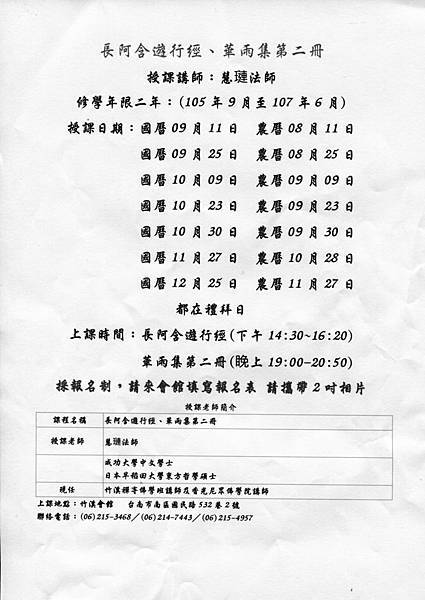 長阿含遊行經、華雨集第二冊
授課講師：慧璉法師
修學年限二年：(105 年 9 月至 107 年 6 月)
授課日期：國曆 09 月 11 日 農曆 08 月 11 日
國曆 09 月 25 日 農曆 08 月 25 日
國曆 10 月 09 日 農曆 09 月 09 日
國曆 10 月 23 日 農曆 09 月 23 日
國曆 10 月 30 日 農曆 09 月 30 日
國曆 11 月 27 日 農曆 10 月 28 日
國曆 12 月 25 日 農曆 11 月 27 日
都在禮拜日
上課時間：長阿含遊行經(下午 14:30~16:20)
華雨集第二冊(晚上 19:00-20:50)
採報名制，請來會館填寫報名表 請攜帶 2 吋相片
授課老師簡介
課程名稱 長阿含遊行經、華雨集第二冊
授課老師 慧璉法師
成功大學中文學士
日本早稻田大學東方哲學碩士
現任 竹溪禪寺佛學班講師及香光尼眾佛學院講師
上課地點：竹溪會館 台南市南區國民路 532 巷 2 號
聯絡電話：(06)215-3468／(06)214-7443／(06)215-4957